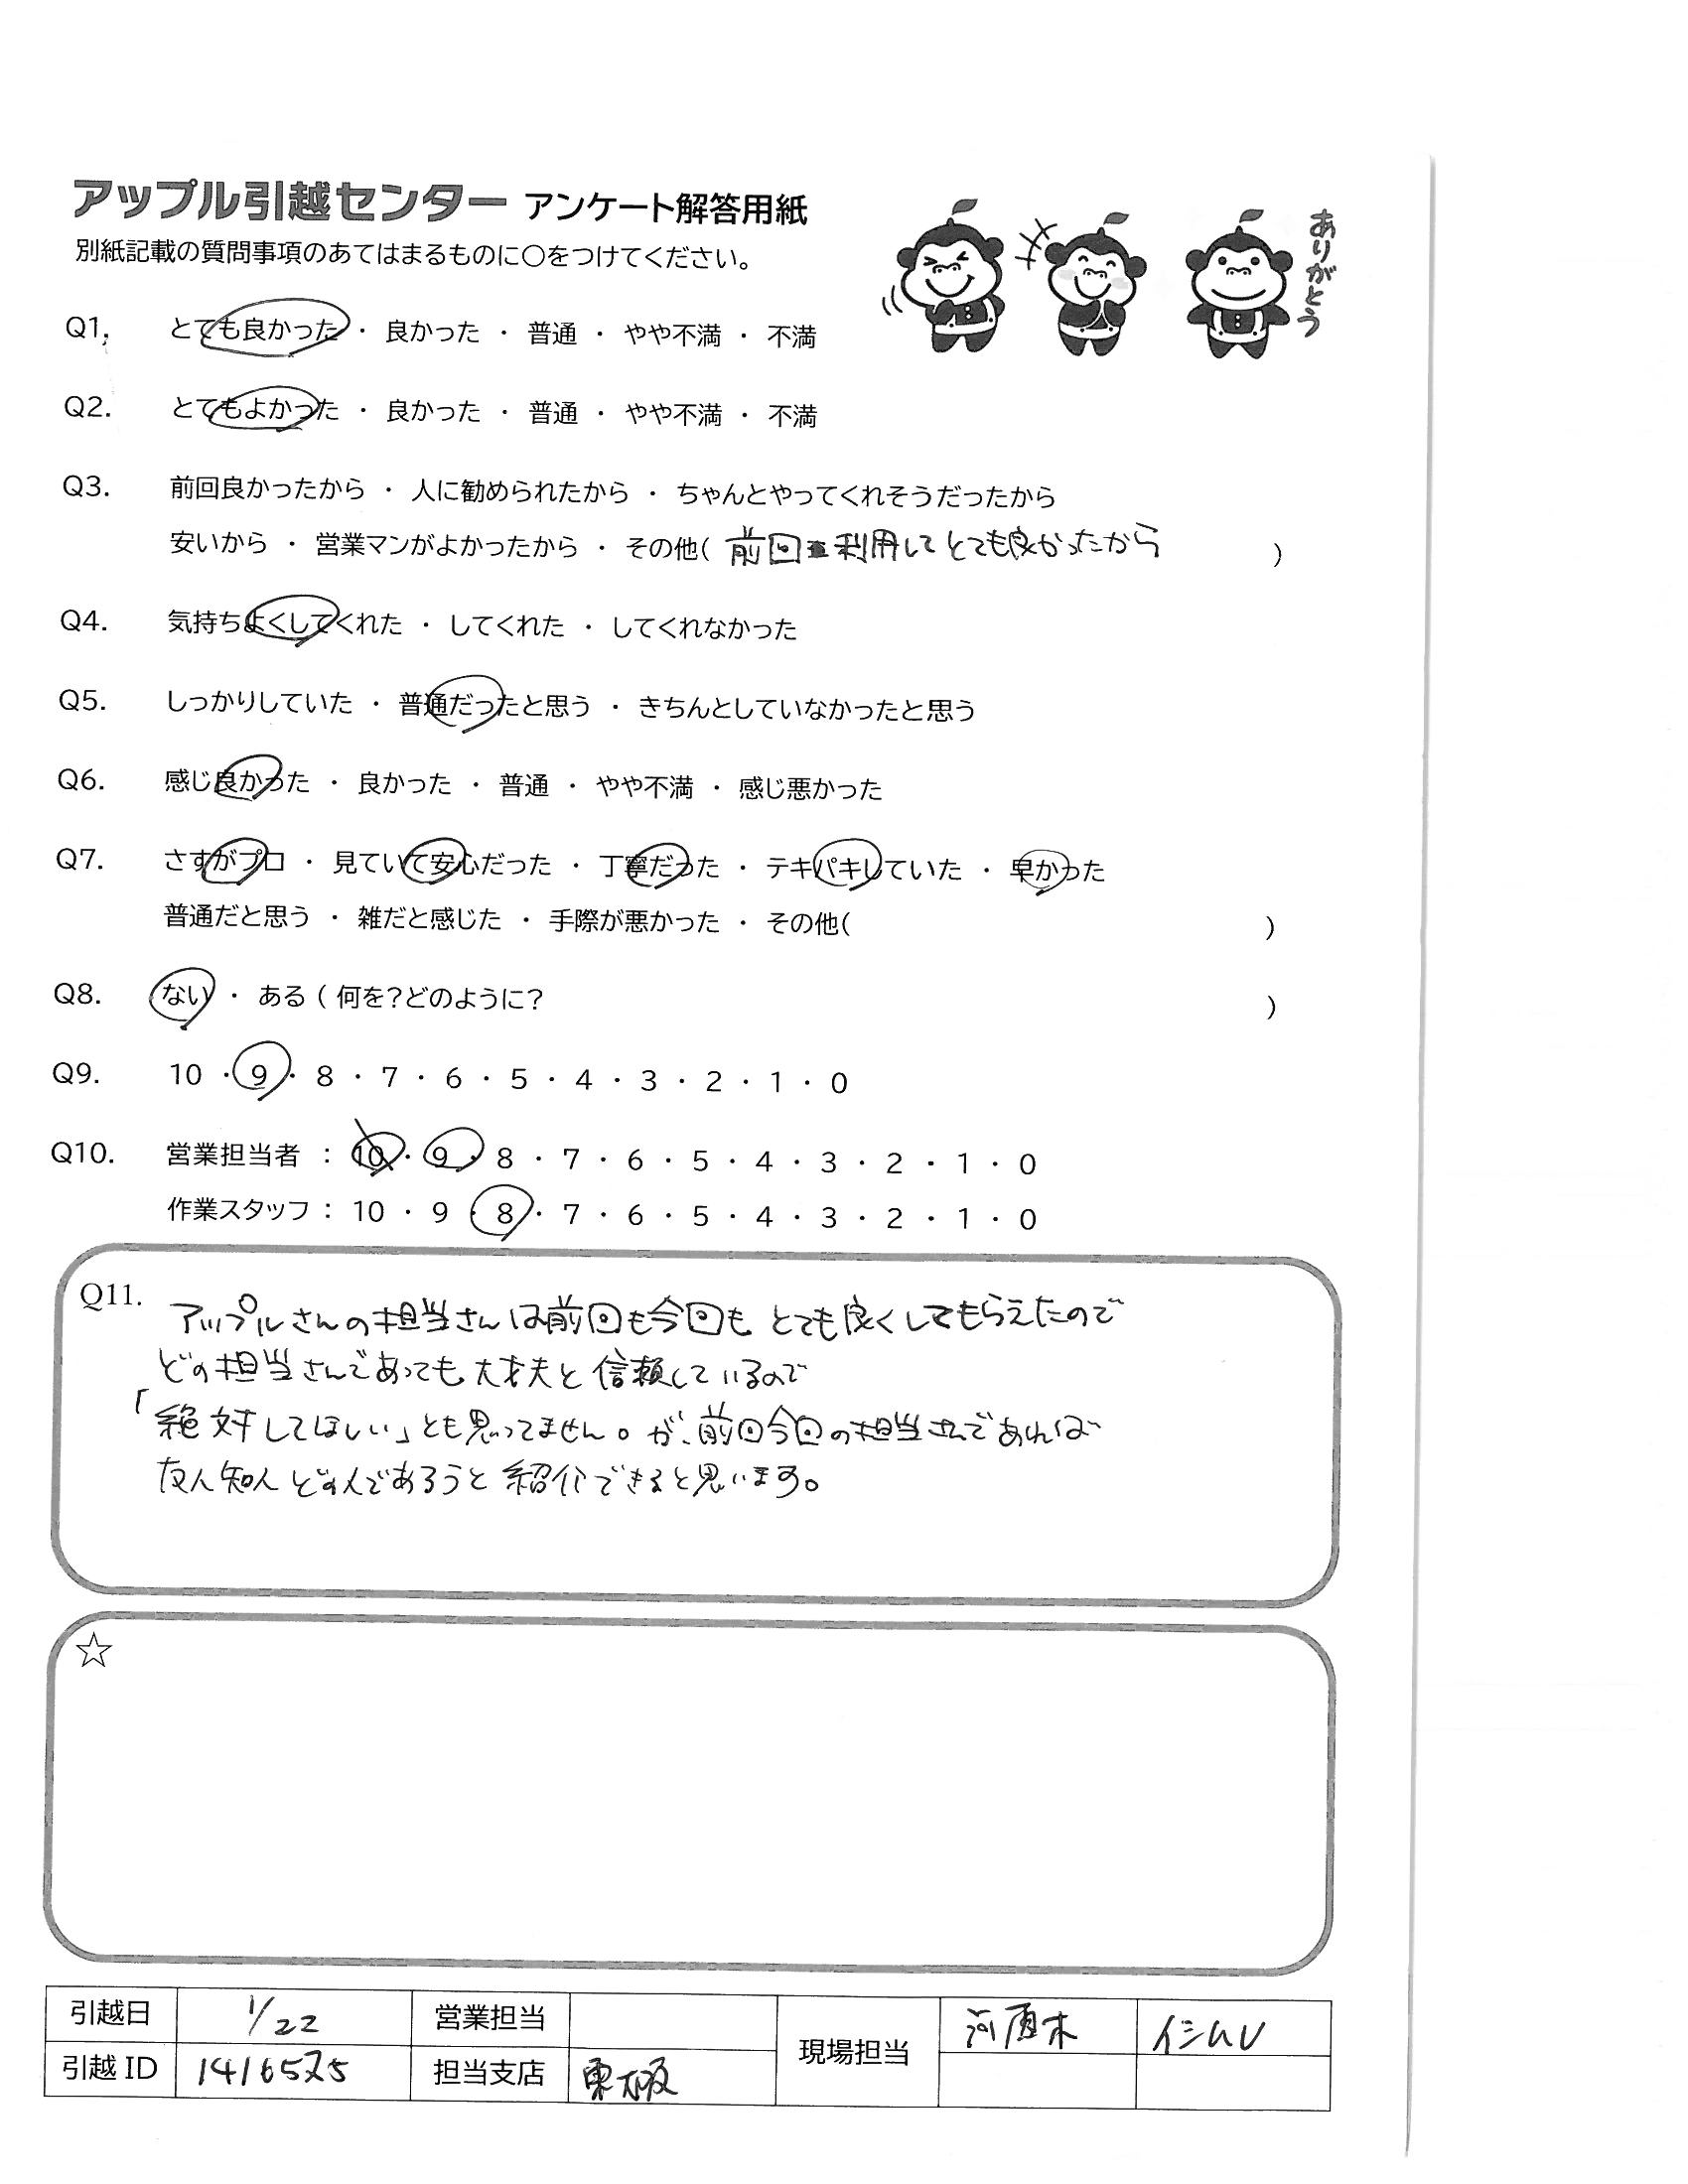 アップル引越センター アンケート解答用紙
別紙記載の質問事項のあてはまるものに○をつけてください。
ありがとう
Q1. とても良かった ・ 良かった ・ 普通 ・ やや不満 ・ 不満
Q2. とてもよかった ・ 良かった ・ 普通 ・ やや不満 ・ 不満
Q3. 前回良かったから ・ 人に勧められたから ・ ちゃんとやってくれそうだったから
安いから ・ 営業マンがよかったから ・ その他( 前回利用してとても良かったから )
Q4. 気持ちよくしてくれた ・ してくれた ・ してくれなかった
Q5. しっかりしていた ・ 普通だったと思う ・ きちんとしていなかったと思う
Q6. 感じ良かった ・ 良かった ・ 普通 ・ やや不満 ・ 感じ悪かった
Q7. さすがプロ ・ 見ていて安心だった ・ 丁寧だった ・ テキパキしていた ・ 早かった
普通だと思う ・ 雑だと感じた ・ 手際が悪かった ・ その他( )
Q8. ない ・ ある ( 何を?どのように? )
Q9. 10 ・ 9 ・ 8 ・ 7 ・ 6 ・ 5 ・ 4 ・ 3 ・ 2 ・ 1 ・ 0
Q10. 営業担当者 : 10 ・ 9 ・ 8 ・ 7 ・ 6 ・ 5 ・ 4 ・ 3 ・ 2 ・ 1 ・ 0
作業スタッフ : 10 ・ 9 ・ 8 ・ 7 ・ 6 ・ 5 ・ 4 ・ 3 ・ 2 ・ 1 ・ 0
Q11. アップルさんの担当さんは前回も今回も とても良くしてもらえたので
どの担当さんであっても大丈夫と信頼しているので
「絶対してほしい」とも思ってません。が、前回今回の担当さんであれば
友人知人どの人であろうと紹介できると思います。
☆
引越日 1/22 営業担当 現場担当 河原木 イシムレ
引越 ID 担当支店 東大阪